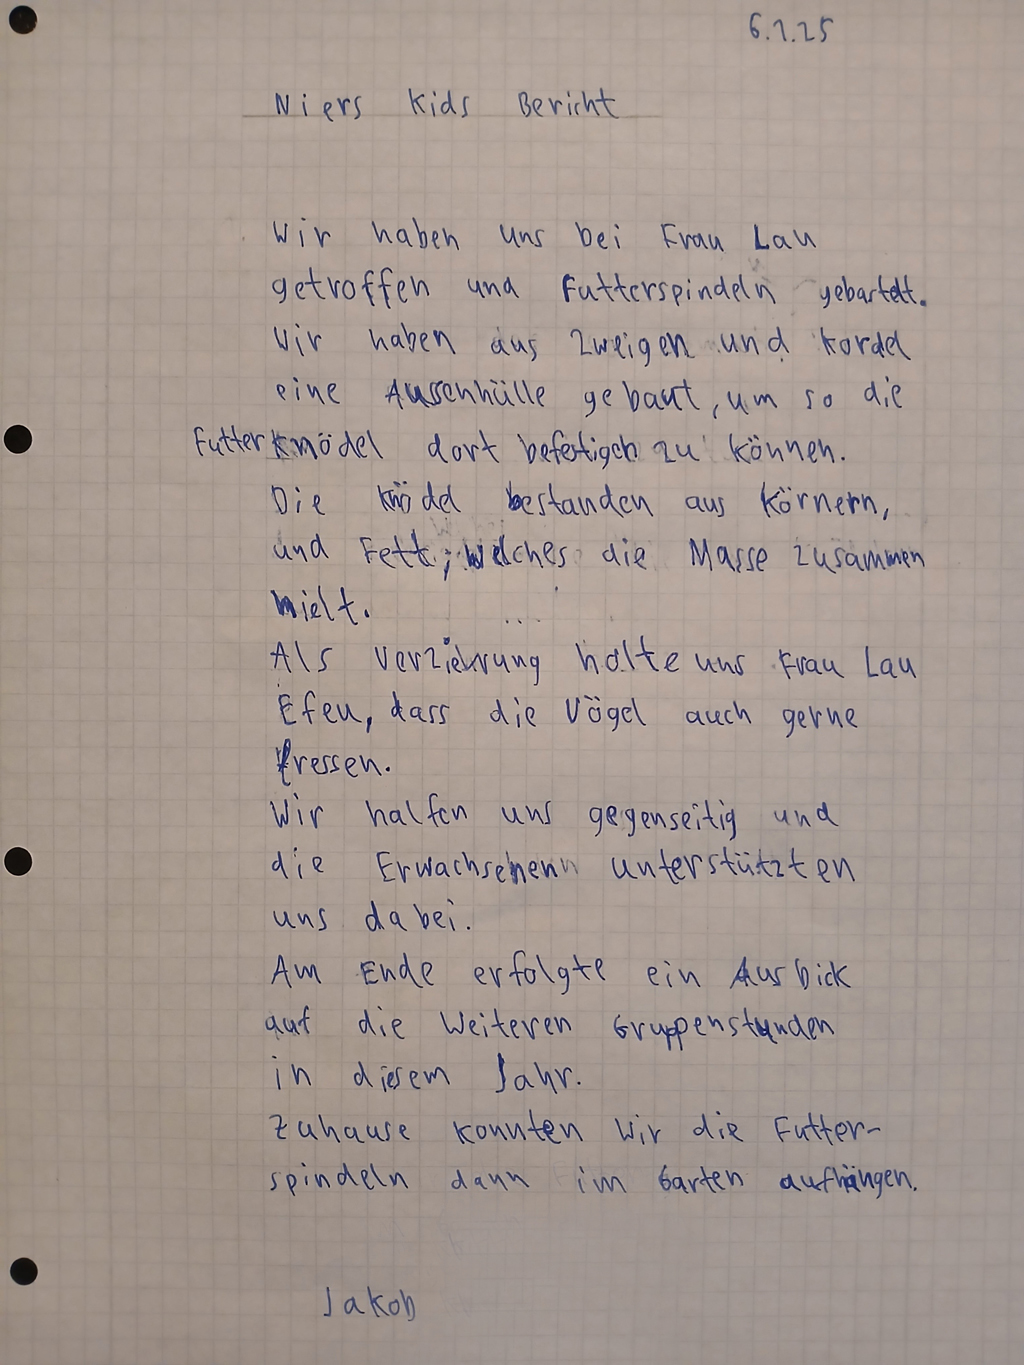 6.1.25
Niers Kids Bericht
Wir haben uns bei Frau Lau
getroffen und Futterspindeln gebastelt.
Wir haben aus Zweigen und Kordel
eine Aussenhülle gebaut, um so die
Futterknödel dort befestigen zu können.
Die Knödel bestanden aus Körnern,
und Fett, welches die Masse zusammen
hielt.
Als Verziehrung holte uns Frau Lau
Efeu, dass die Vögel auch gerne
fressen.
Wir halfen uns gegenseitig und
die Erwachsenen unterstützten
uns dabei.
Am Ende erfolgte ein Ausbick
auf die Weiteren Gruppenstunden
in diesem Jahr.
Zuhause konnten wir die Futter-
spindeln dann im Garten aufhängen.
Jakob